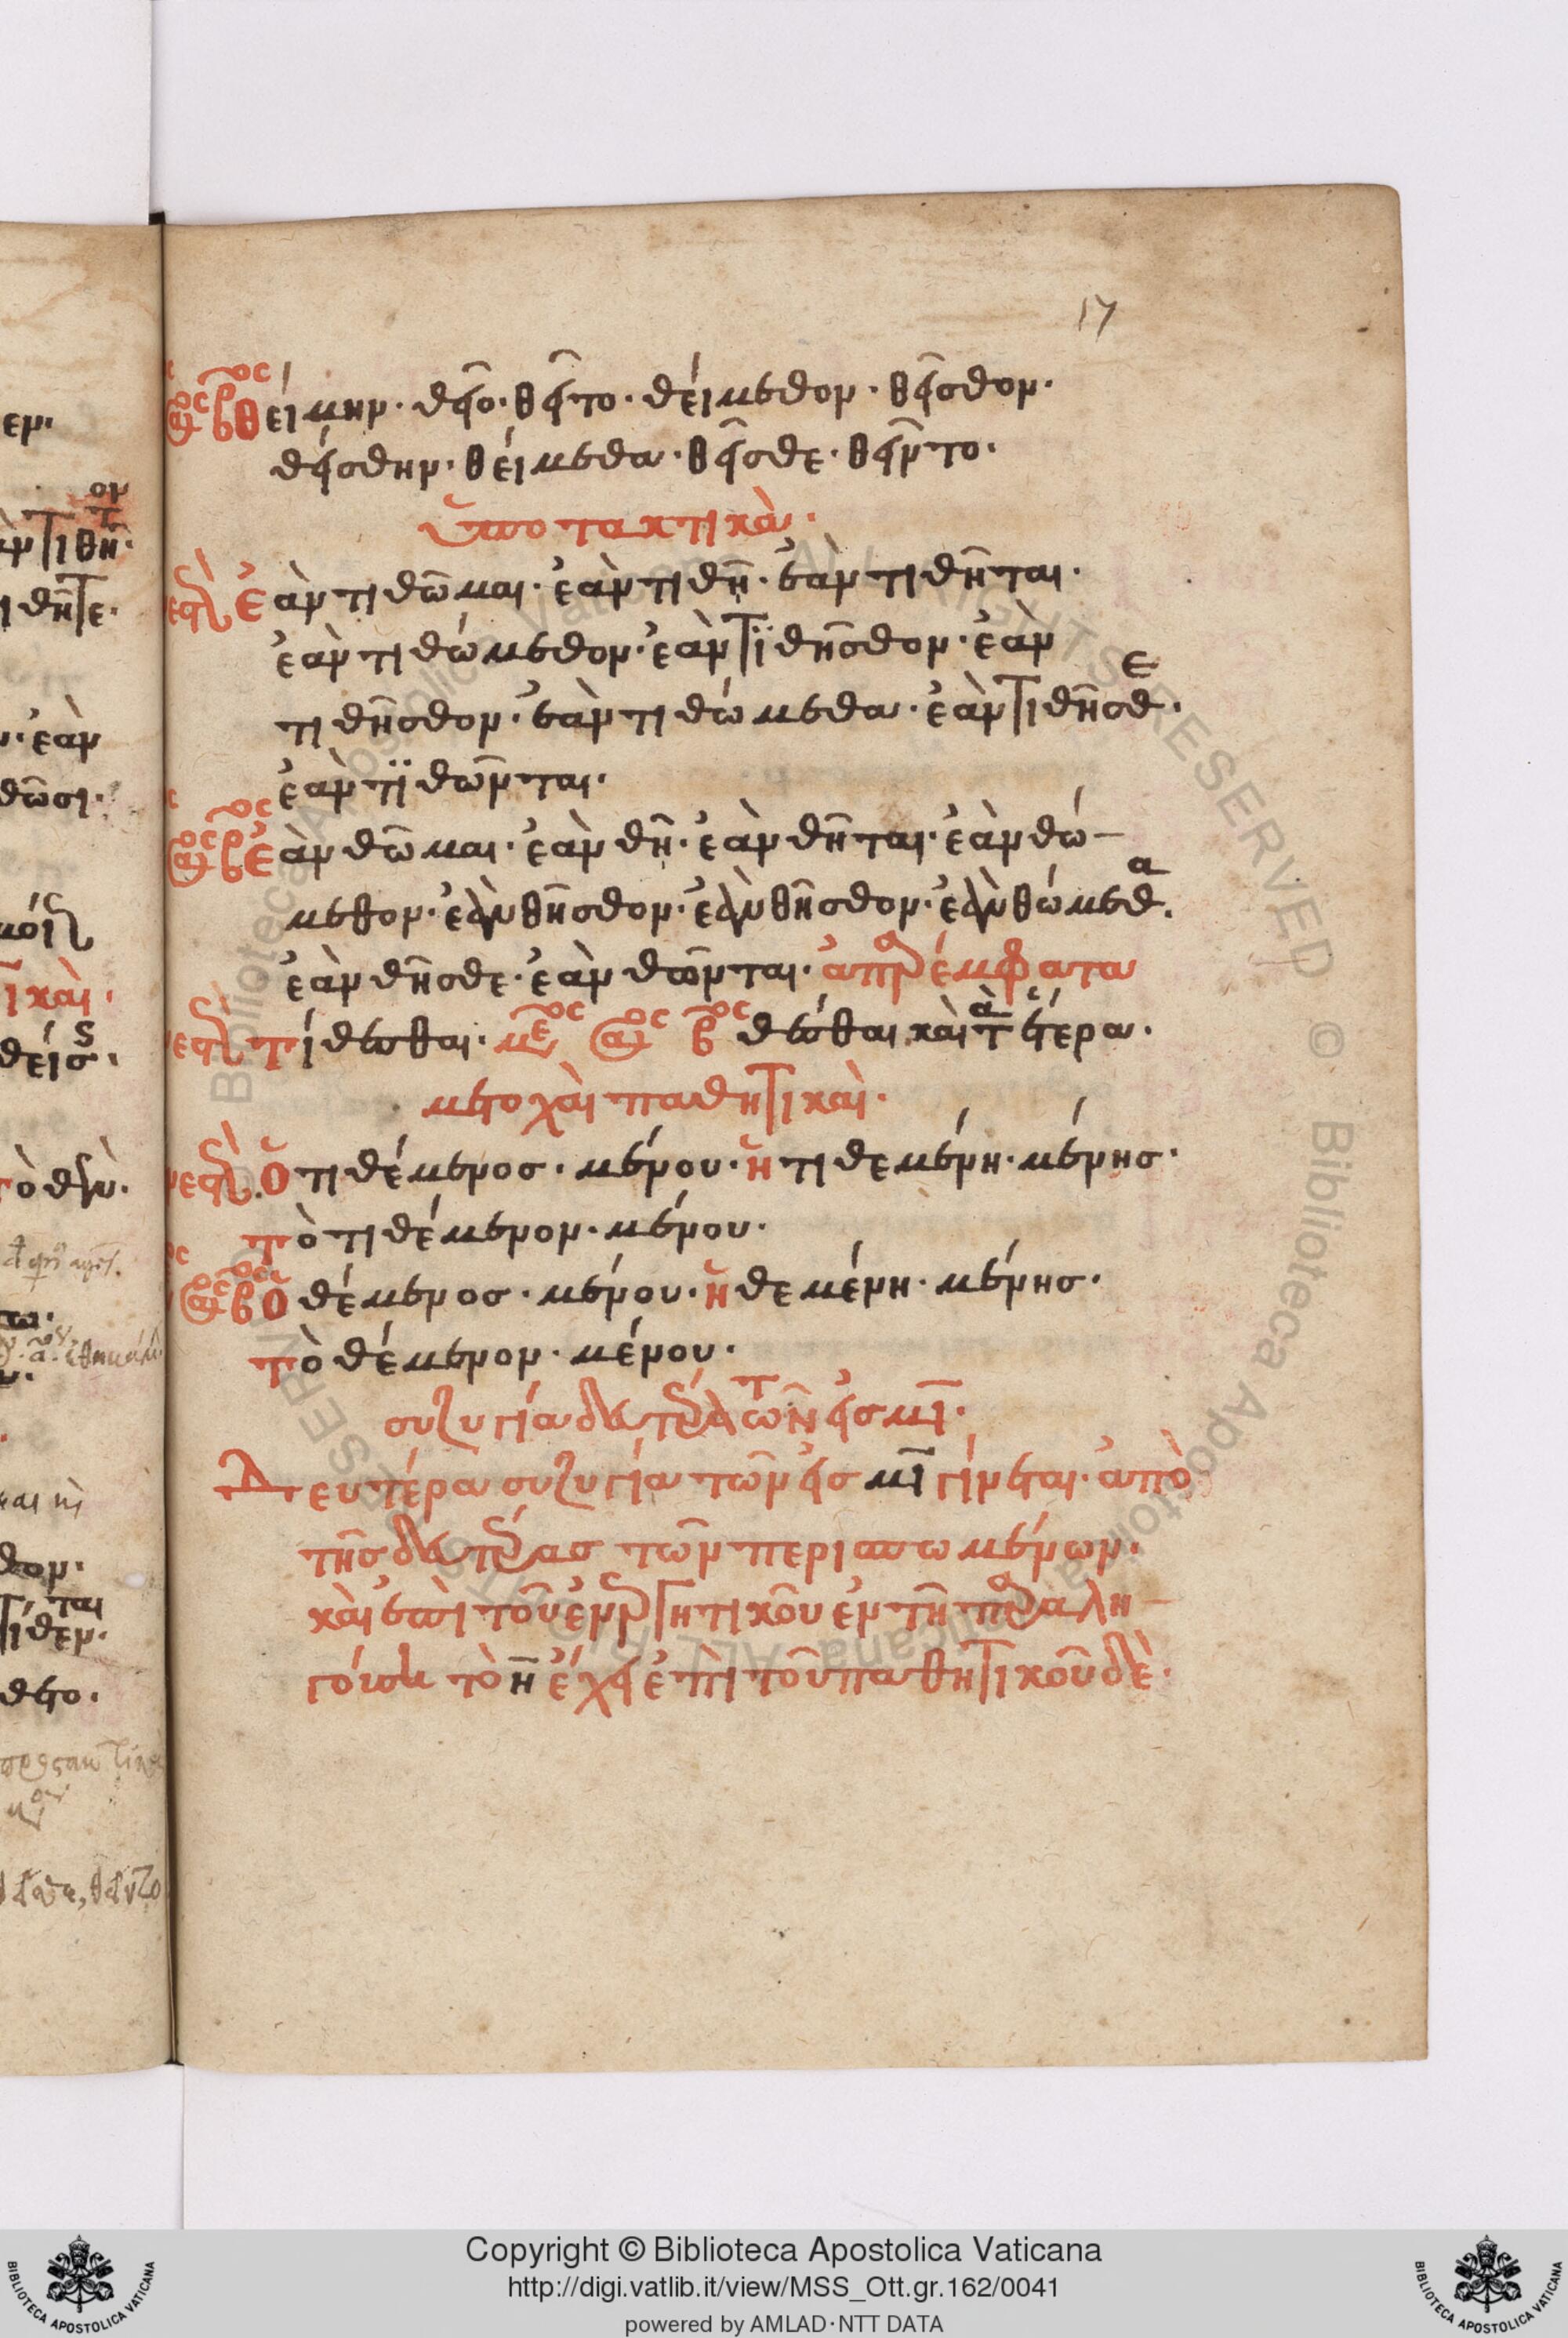 17
θείμην· θεῖο· θεῖτο· θείμεθον· θεῖσθον·
θείσθην· θείμεθα· θεῖσθε· θεῖντο·
ὑποτακτικὰ·
ἐὰν τιθῶμαι· ἐὰν τιθῆ· ἐὰν τιθῆται·
ἐὰν τιθώμεθον· ἐὰν τϊθῆσθον· ἐὰν
τιθῆσθον· ἐὰν τιθώμεθα· ἐὰν τιθῆσθε·
ἐὰν τϊθῶνται·
ἐὰν θῶμαι· ἐὰν θῆ· ἐὰν θῆται· ἐὰν θώ-
μεθον· ἐὰν θῆσθον· ἐὰν θῆσθον· ἐὰν θώμεθα.
ἐὰν θῆσθε· ἐὰν θῶνται· ἀπαρέμφατα
τίθεσθαι· θέσθαι καὶ τὰ ἕτερα·
μετοχαὶ παθητικαὶ·
Ὁ τιθέμενος· μένου· ἡ τιθεμένη· μένης·
τὸ τιθέμενον· μένου·
Ὁ θέμενος· μένου· ἡ θεμένη· μένης·
τὸ θέμενον· μένου·
συζυγία δευτέρα τῶν εἰς μι·
Δευτέρα συζυγία τῶν εἰς μι γίνεται· ἀπὸ
τῆς δευτέρας τῶν περισπωμένων·
καὶ ἐπὶ τοῦ ἐνεργητικοῦ ἐν τῆ παραλη-
γούση τὸ η ἔχει ἐπὶ τοῦ παθητικοῦ δὲ·
Copyright © Biblioteca Apostolica Vaticana
http://digi.vatlib.it/view/MSS_Ott.gr.162/0041
powered by AMLAD·NTT DATA
BIBLIOTECA APOSTOLICA VATICANA
BIBLIOTECA APOSTOLICA VATICANA